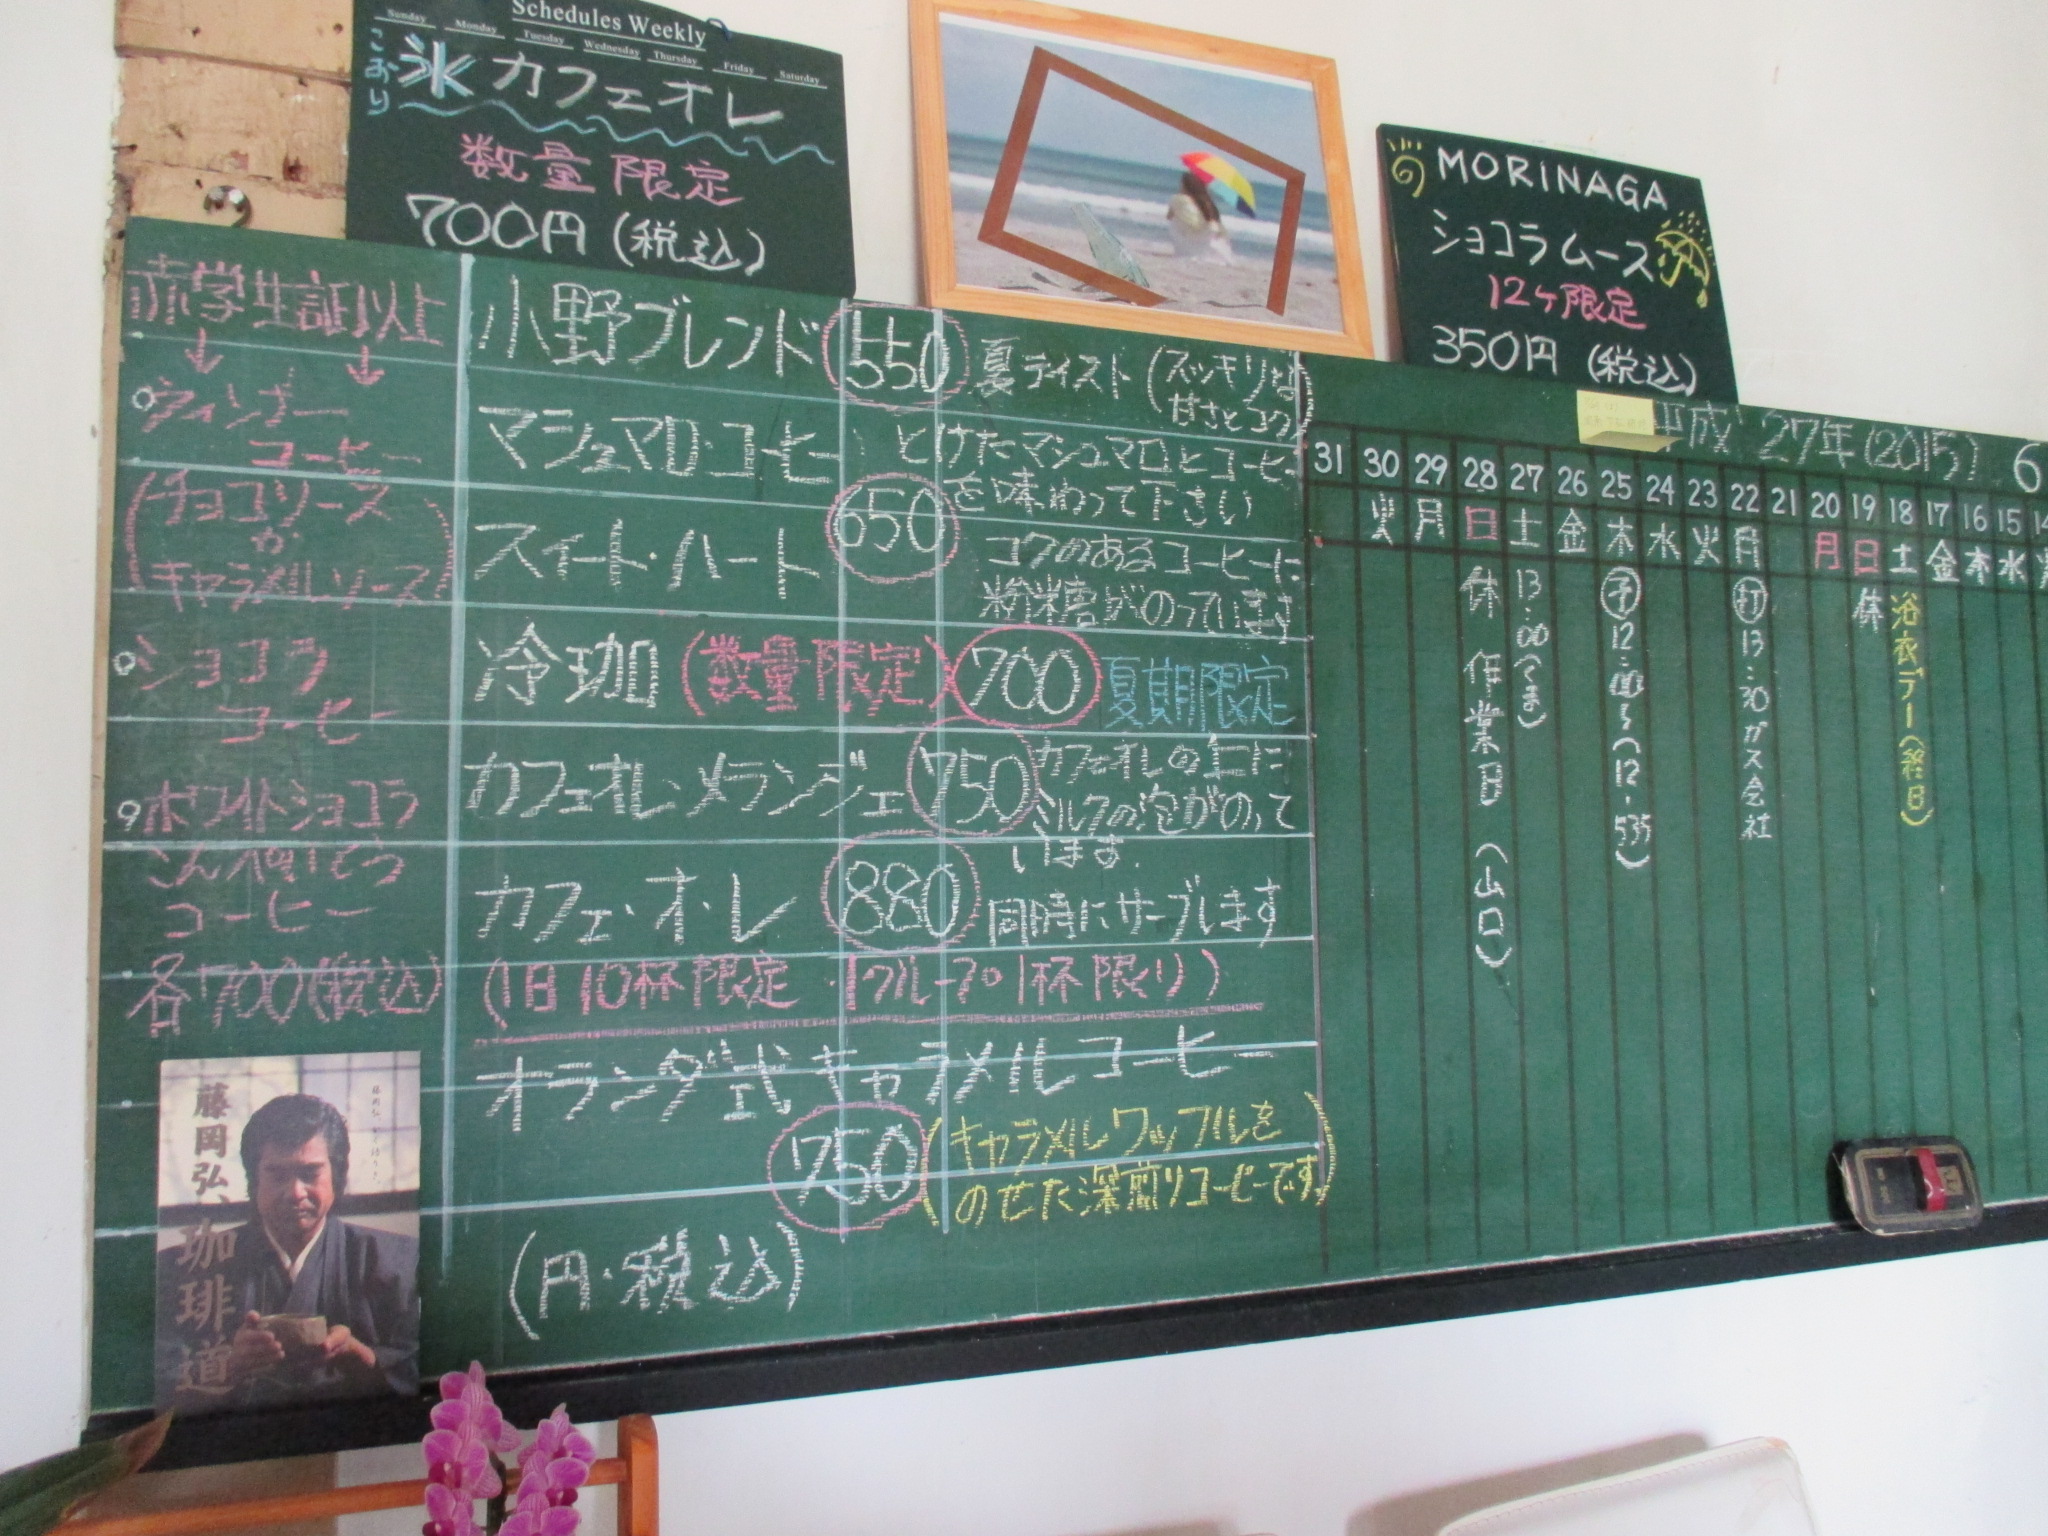 Schedules Weekly
Sunday Monday Tuesday Wednesday Thursday Friday Saturday
こおり
氷カフェオレ
数量限定
700円(税込)
MORINAGA
ショコラムース
12ヶ限定
350円(税込)
赤学生証以上
ウィンナー
コーヒー
(チョコソース
か
キャラメルソース)
ショコラ
コーヒー
ホワイトショコラ
こんぺいとう
コーヒー
各700(税込)
小野ブレンド 550 夏テイスト(スッキリな
甘さとコク)
マシュマロ・コーヒー とけたマシュマロとコーヒー
を味わって下さい
650
スイート・ハート コクのあるコーヒーに
粉糖がのっています
冷珈(数量限定) 700 夏期限定
カフェオレ・メランジェ 750 カフェオレの上に
ミルクの泡がのって
います.
カフェ・オ・レ 880 同時にサーブします
(1日10杯限定 1グループ1杯限り)
オランダ式キャラメルコーヒー
750 (キャラメルワッフルを
のせた深煎りコーヒーです)
(円・税込)
平成27年(2015) 6
31 30 29 28 27 26 25 24 23 22 21 20 19 18 17 16 15 14
火 月 日 土 金 木 水 火 月 月 日 土 金 木 水 火
休 作業日 (山口)
13:00(くま)
予 12:00〜(12-535)
打 13:30ガス会社
休
浴衣デー(終日)
藤岡弘、
珈琲道